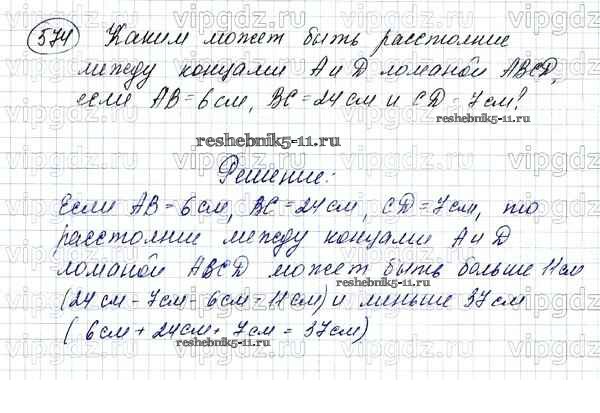 574 Каким может быть расстояние
между концами А и D ломаной ABCD,
если AB = 6 см, BC = 24 см и CD = 7 см?
reshebnik5-11.ru
Решение:
Если AB = 6 см, BC = 24 см, CD = 7 см, то
расстояние между концами А и D
ломаной ABCD может быть больше 11 см
(24 см - 7 см - 6 см = 11 см) и меньше 37 см
(6 см + 24 см + 7 см = 37 см)
reshebnik5-11.ru
vipgdz